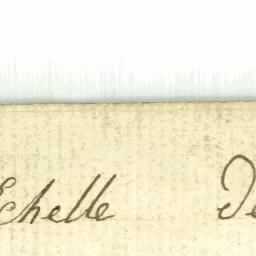 Echelle De